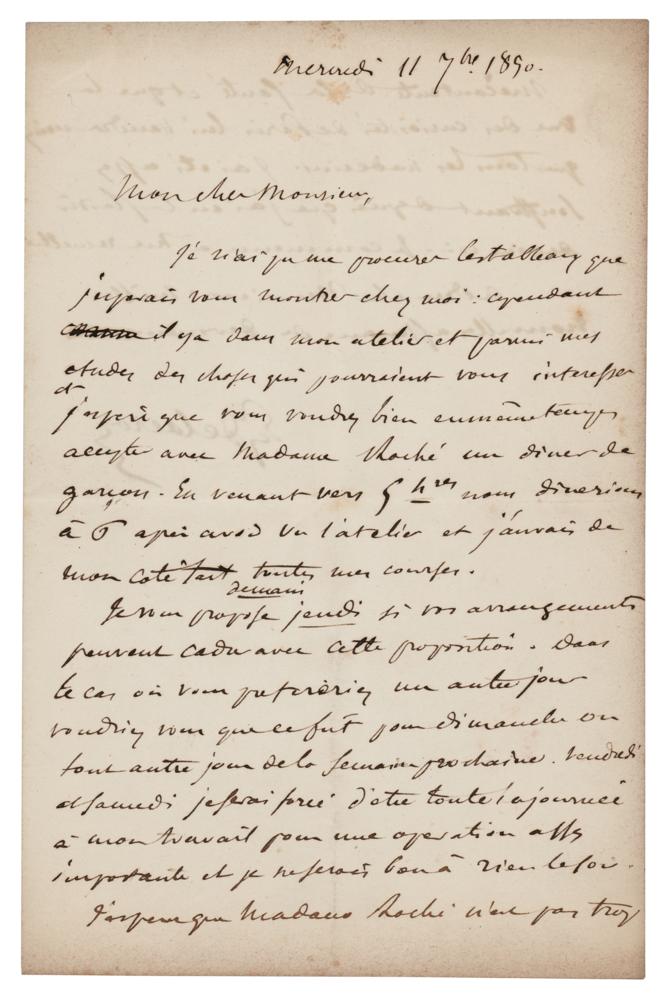 Mercredi 11 7bre 1850.
Mon cher Monsieur,
Je n'ai pu me procurer les tableaux que
j'esperais vous montrer chez moi : cependant
il y a dans mon atelier et parmi mes
etudes des choses qui pourraient vous interesser
et
j'espere que vous voudrez bien en même temps
accepter avec Madame Roché un diner de
garçon. En venant vers 5 hres nous dinerions
à 6 après avoir vu l'atelier et j'aurais de
mon coté fait toutes mes courses.
demain
Je vous propose jeudi si vos arrangements
peuvent cadrer avec cette proposition. Dans
le cas où vous prefereriez un autre jour
voudriez vous que ce fut pour dimanche ou
tout autre jour de la semaine prochaine. Vendredi
et Samedi je serai forcé d'etre toute la journée
à mon travail pour une operation assez
importante et je ne serais bon à rien le soir.
J'espere que Madame Roché n'est pas trop